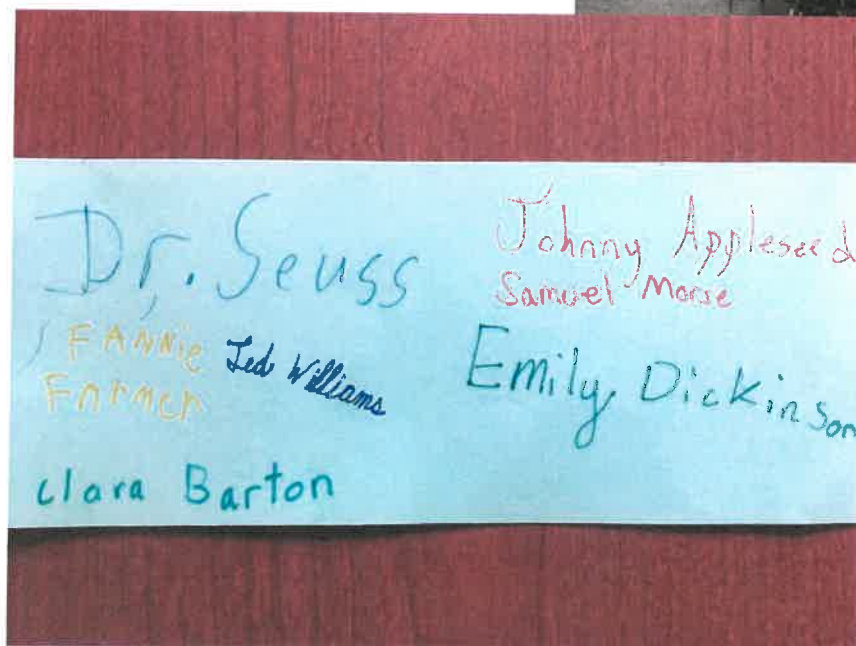 Dr. Seuss
Johnny Appleseed
Samuel Morse
FANNie
FArmer
Ted Williams
Emily Dickinson
Clara Barton